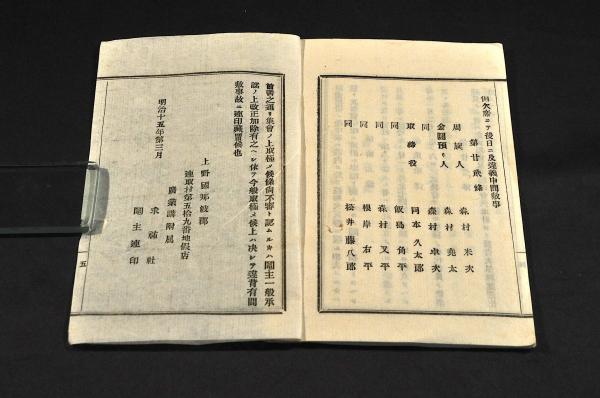 但欠席ニテ後日ニ及違義申間敷事
第廿貳條
周旋人 森村米次
同 森村堯太
金圓預リ人 森村卓次
同 岡本久太郎
取締役 飯島角平
同 森村又平
同 根岸右平
同 桜井藤八郎
前書之通リ集會ノ上取極メ候條尚不審ト認ムル者ハ鬮主一般承
認ノ上改正加除有之ヘシ依テ今般取極メ候上ハ決シテ違背有間
敷事故ニ連印藏置候也
明治十五年第三月
上野國那波郡
連取村第五拾九番地假店
廣業講附属
永福社
鬮主連印
五